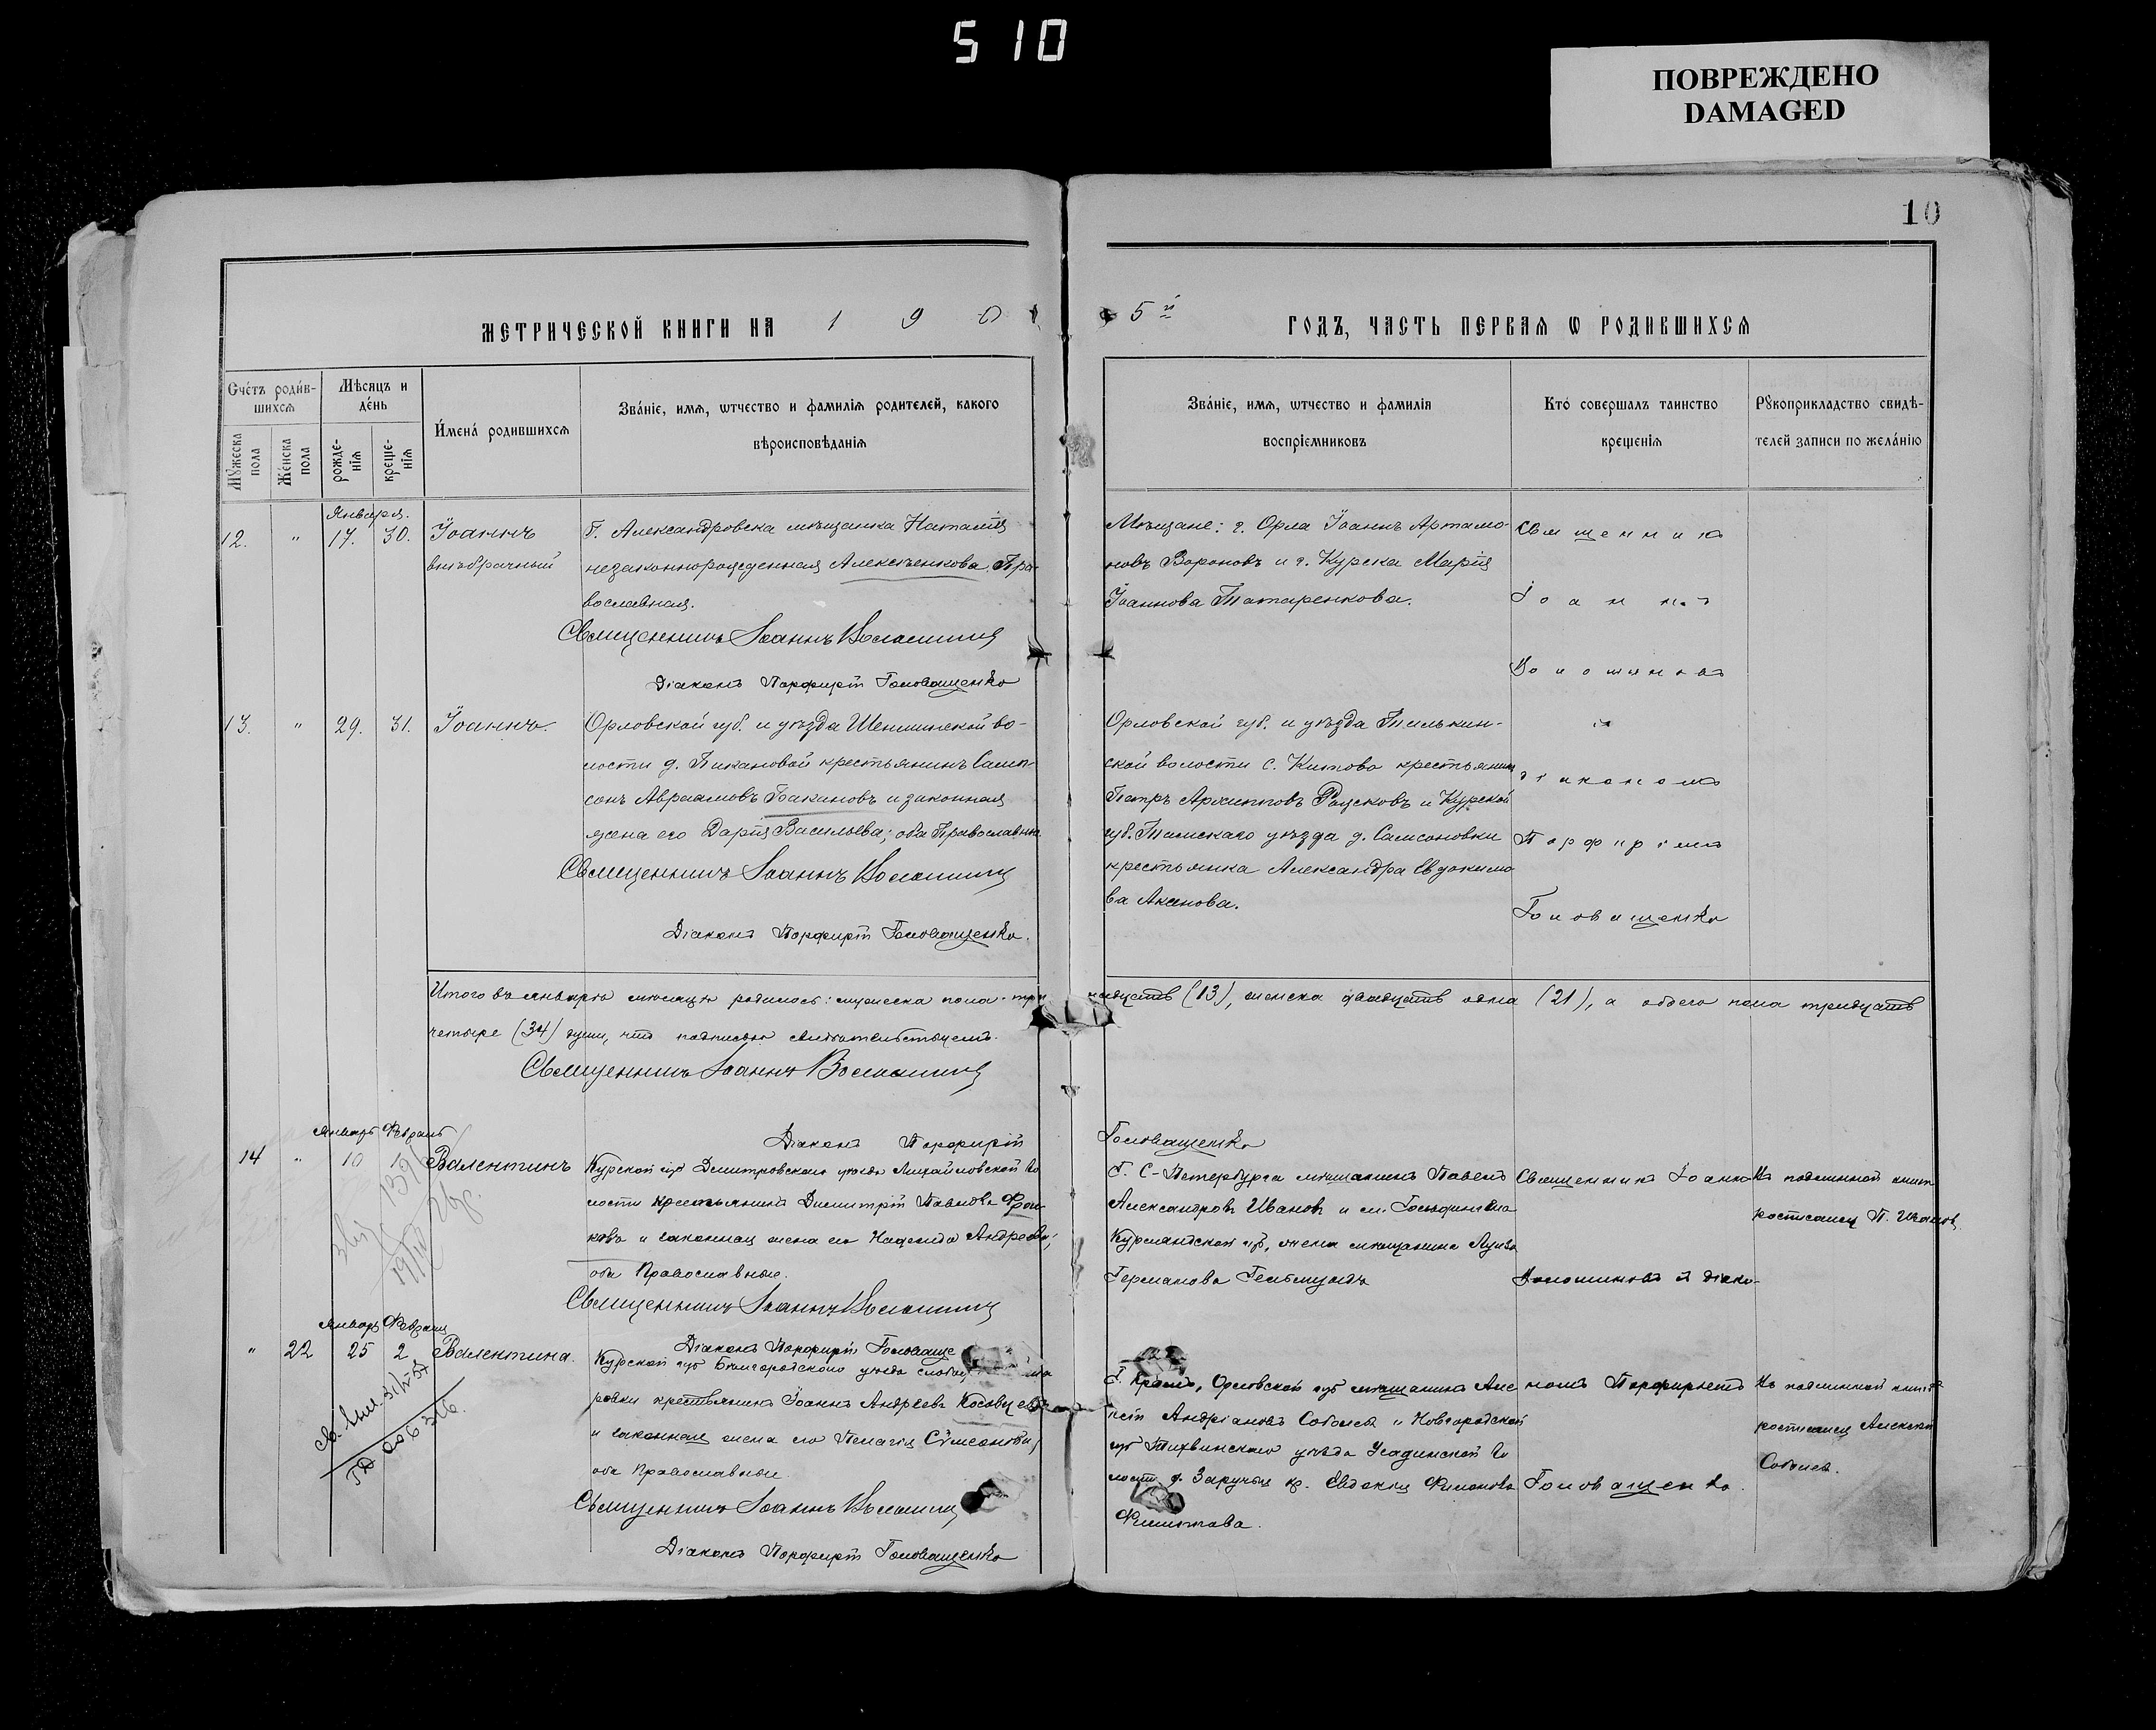 510
ПОВРЕЖДЕНО
DAMAGED
10
МЕТРИЧЕСКОЙ КНИГИ НА 1 9 0
5й ГОДЪ, ЧАСТЬ ПЕРВАѦ Ѡ РОДИВШИХСѦ
Счетъ родив-
шихсѧ
Мꙋжеска пола
Женска пола
Мѣсяцъ и
день
рожде-
нія
креще-
нія
Имена родившихсѧ
Званіе, имѧ, ѡтчество и фамиліѧ родителей, какого
вѣроисповѣданіѧ
Званіе, имѧ, ѡтчество и фамиліѧ
воспріемниковъ
Кто совершалъ таинство
крещеніѧ
Рꙋкоприкладство свидѣ-
телей записи по желанію
Января.
12. " 17. 30. Іоаннъ
внѣбрачный
Г. Александровска мѣщанка Наталія
незаконнорожденная Алексѣенкова. Пра-
вославная.
Священникъ Іоаннъ Волошинъ
Діаконъ Порфирій Головащенко
Мѣщане: г. Орла Іоаннъ Артамо-
новъ Вороновъ и г. Курска Марія
Іоаннова Татаренкова.
Священникъ
Іоаннъ
Волошиновъ
13. " 29. 31. Іоаннъ.
Орловской губ. и уѣзда Шеншинской во-
лости д. Пикановой крестьянинъ Самп-
сонъ Авраамовъ Бакиновъ и законная
жена его Дарія Васильева; оба Православные
Священникъ Іоаннъ Волошинъ
Діаконъ Порфирій Головащенко.
Орловской губ. и уѣзда
ской волости с. Китово крестьянинъ
Петръ Архипповъ и Курской
губ. Тимскаго уѣзда д. Самсоновки
крестьянка Александра Евдокимо
ва Аканова.
съ
діакономъ
Порфиріемъ
Головащенко
Итого въ январѣ мѣсяцѣ родилось: мужеска пола три-
надцать (13), женска двадцать одна (21), а обоего пола тридцать
четыре (34) души, что подписью свидѣтельствуемъ.
Священникъ Іоаннъ Волошинъ
Діаконъ Порфирій
Головащенко
Январь Февраль
14 " 10 1 Валентинъ
Курской губ Дмитровскаго уѣзда Михайловской во
лости крестьянинъ Димитрій Павловъ
ковъ и законная жена его Надежда Андреева;
оба Православные.
Священникъ Іоаннъ Волошинъ
Діаконъ Порфирій Головаще
Г. С-Петербурга мѣщанинъ Павелъ
Александровъ Ивановъ и м.
Курляндской губ, жена мѣщанина Луиза
Германова
Священникъ Іоаннъ
Волошиновъ съ діако-
Къ подлинной книгѣ
росписался П. Ивановъ.
Январь Февраль
" 22 25 2 Валентина.
Курской губ Бѣлгородскаго уѣзда
ровки крестьянинъ Іоаннъ Андреевъ Косовцевъ
и законная жена его Пелагія Сѵмеонова;
оба Православные.
Священникъ Іоаннъ Волошинъ
Діаконъ Порфирій Головащенко
Г. Кромъ, Орловской губ мѣщанинъ Алек
Андріановъ Соболевъ и Новгородской
губ Тихвинскаго уѣзда Усадинской во
лости д. Заручья кр. Евдокія Филонова
Филиппова.
номъ Порфирьемъ
Головащенко.
Къ подлинной книгѣ
росписался Алексѣй
Соболев.